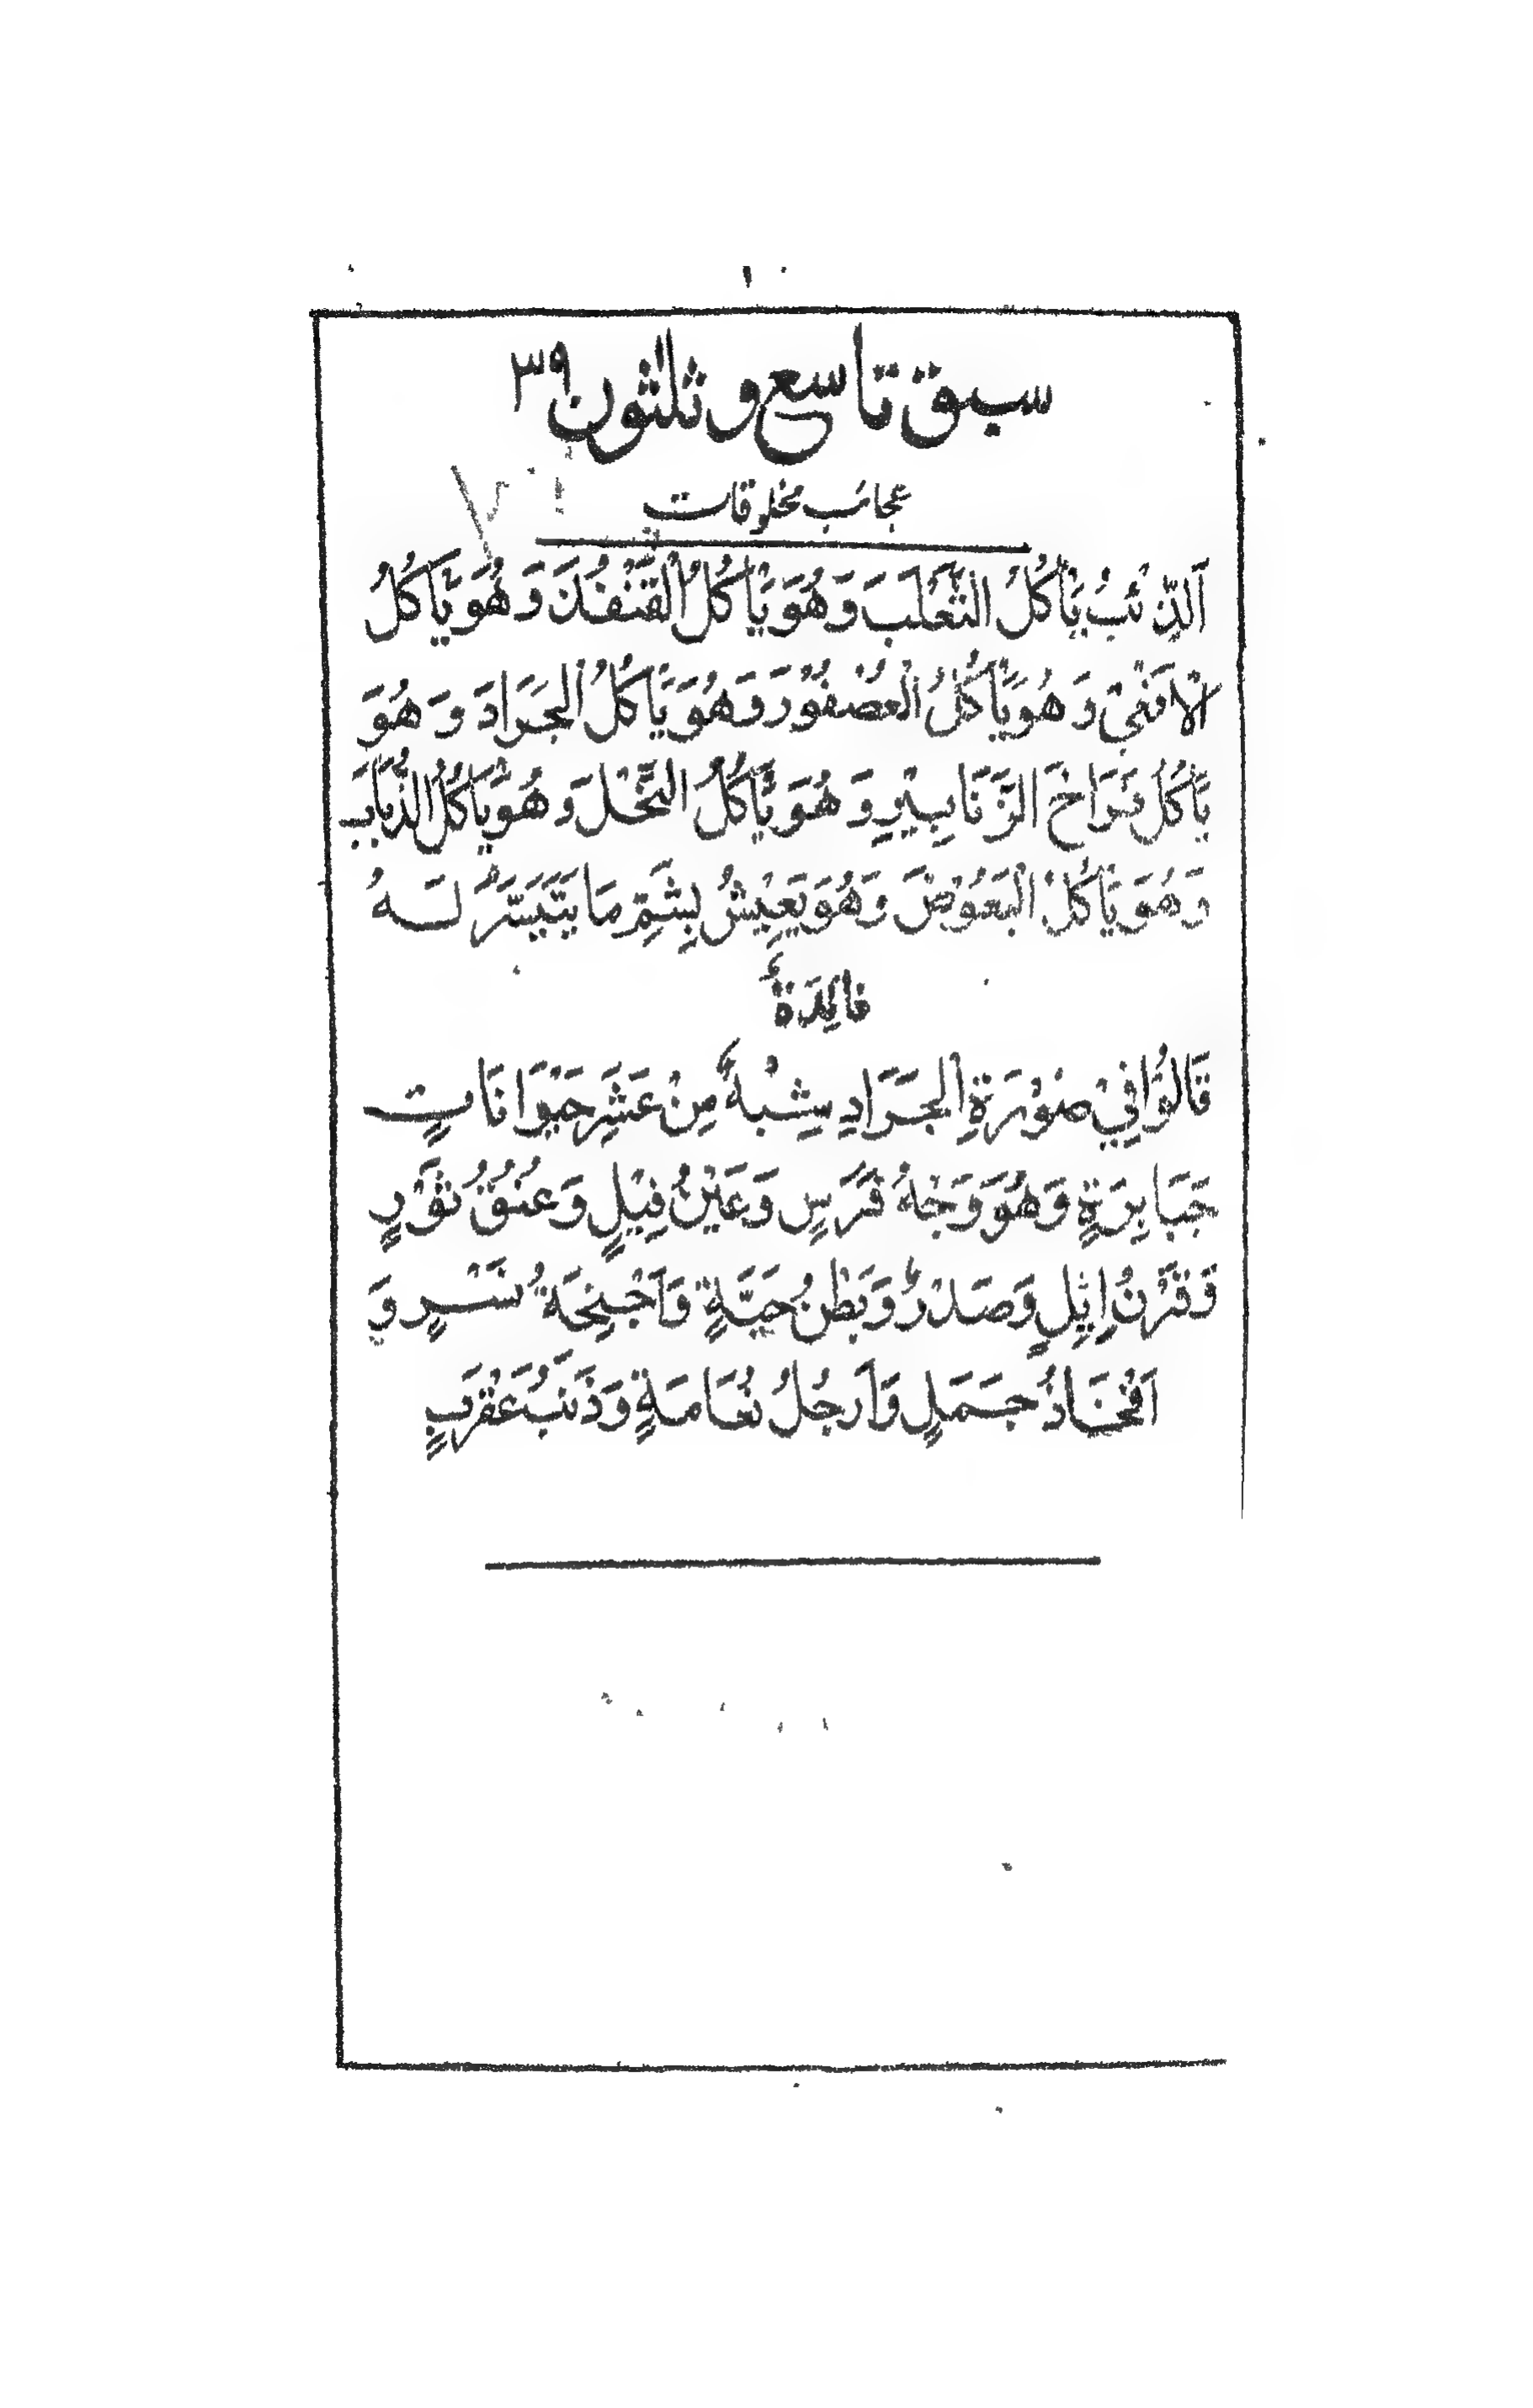 سبق تاسع و ثلثون ٣٩
عجائب مخلوقات
اَلذِّئْبُ يَأْكُلُ الثَّعْلَبَ وَهُوَ يَأْكُلُ الْقُنْفُذَ وَهُوَ يَأْكُلُ
الْاَفْعٰى وَهُوَ يَأْكُلُ الْعُصْفُوْرَ وَهُوَ يَأْكُلُ الْجَرَادَ وَهُوَ
يَأْكُلُ فَرَاخَ الزَّنَابِيْرِ وَهُوَ يَأْكُلُ النَّحْلَ وَهُوَ يَأْكُلُ الذُّبَابَ
وَهُوَ يَأْكُلُ الْبَعُوْضَ وَهُوَ يَعِيْشُ بِشَمِّ مَا يَتَيَسَّرُ لَهُ
فائِدَةٌ
قَالُوْا فِيْ صُوْرَةِ الْجَرَادِ شِبْهٌ مِنْ عَشَرِ حَيْوَانَاتٍ
جَبَابِرَةٍ وَهُوَ وَجْهُ فَرَسٍ وَعَيْنُ فِيْلٍ وَعُنُقُ ثَوْرٍ
وَقَرْنُ اِيِّلٍ وَصَدْرٌ وَبَطْنُ حَيَّةٍ وَاَجْنِحَةُ نَسْرٍ وَ
اَفْخَاذُ جَمَلٍ وَاَرْجُلُ نَعَامَةٍ وَذَنَبُ عَقْرَبٍ